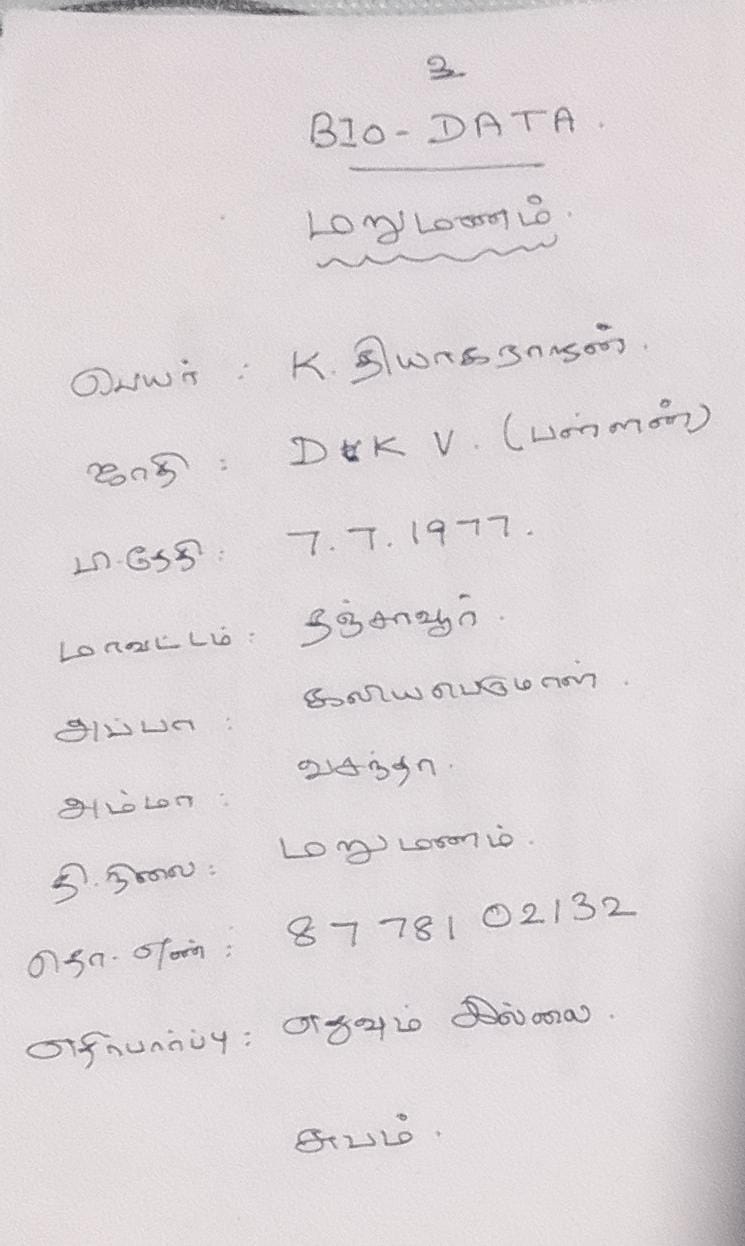 உ
BIO-DATA.
மறுமணம்.
பெயர் : K. தியாகராஜன்.
ஜாதி : DKV. (பள்ளன்)
பி.தேதி : 7.7.1977.
மாவட்டம் : தஞ்சாவூர்.
அப்பா : கலியபெருமாள்.
அம்மா : வசந்தா.
தி.நிலை : மறுமணம்.
தொ.எண் : 87781 02132
எதிர்பார்ப்பு : எதுவும் இல்லை.
சுபம்.